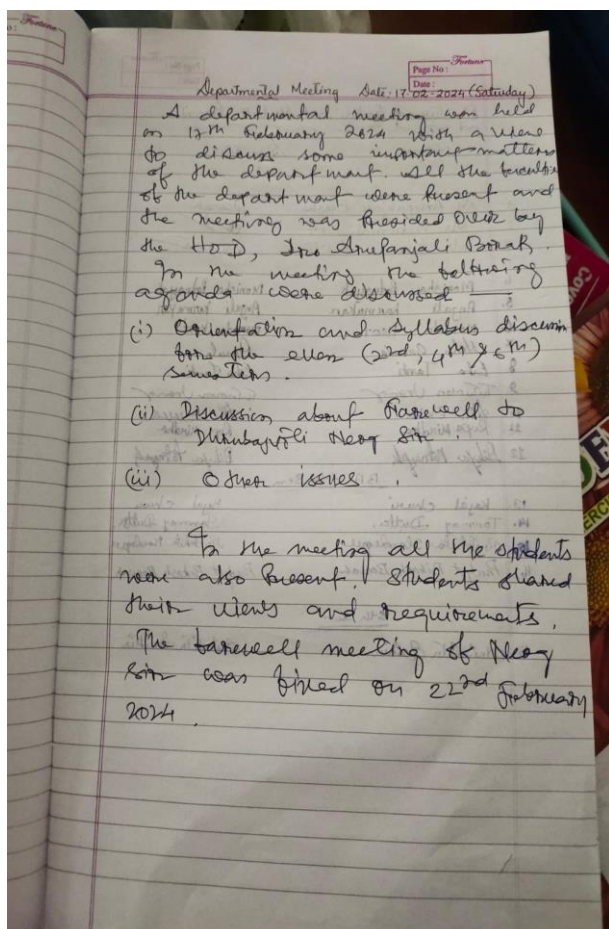 Fortune
Page No :
Date :
Departmental Meeting Date: 17-02-2024 (Saturday)
A departmental meeting was held
on 17th February 2024 with a view
to discuss some important matters
of the department. All the faculties
of the department were present and
the meeting was presided over by
the HoD, Borah.
In the meeting the following
agenda were discussed —
(i) Orientation and syllabus discussion
for the even (2nd, 4th & 6th)
semesters.
(ii) Discussion about Farewell to
Neog Sir.
(iii) Other issues.
In the meeting all the students
were also present. Students shared
their views and requirements.
The farewell meeting of Neog
Sir was fixed on 22nd February
2024.